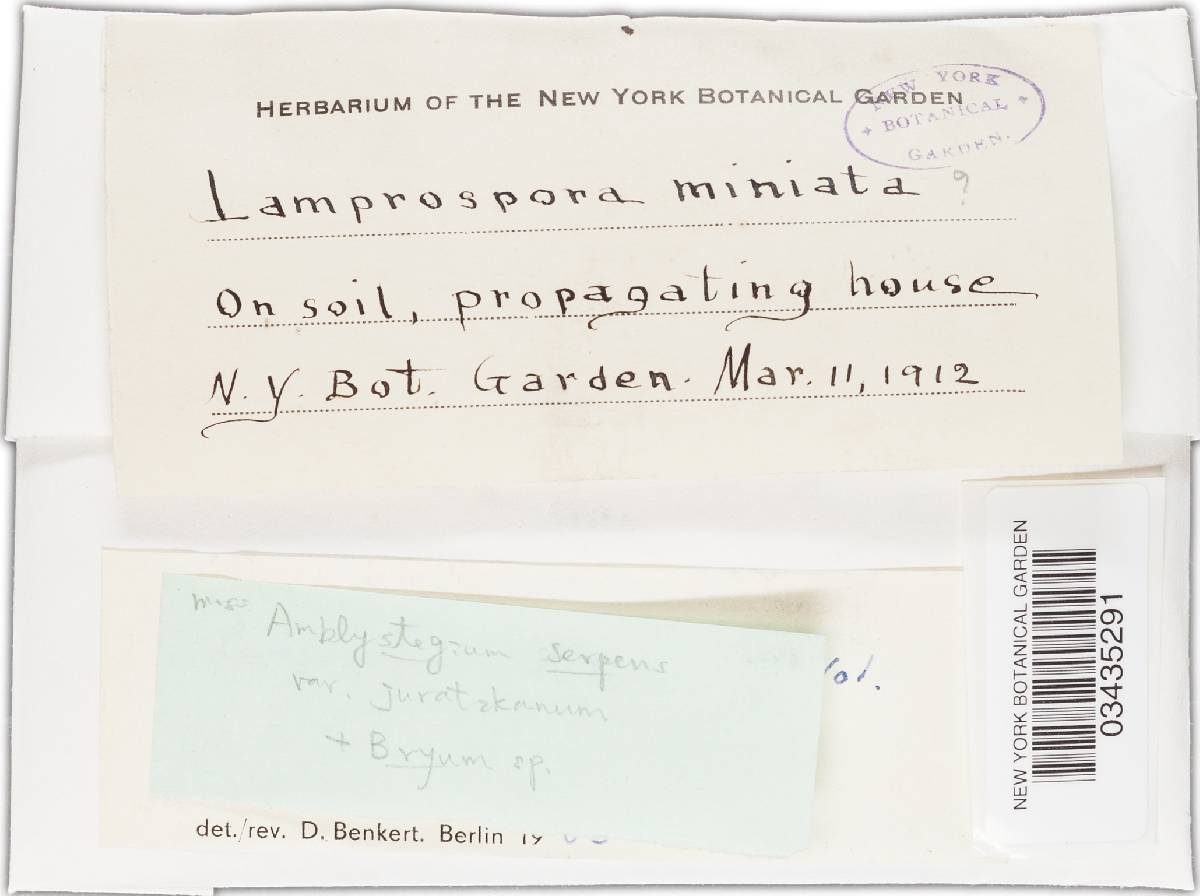 HERBARIUM OF THE NEW YORK BOTANICAL GARDEN
NEW YORK
BOTANICAL
GARDEN.
Lamprospora miniata ?
On soil, propagating house
N. Y. Bot. Garden. Mar. 11, 1912
NEW YORK BOTANICAL GARDEN
03435291
Amblystegium serpens
var. juratzkanum
+ Bryum sp.
det./rev. D. Benkert. Berlin 19